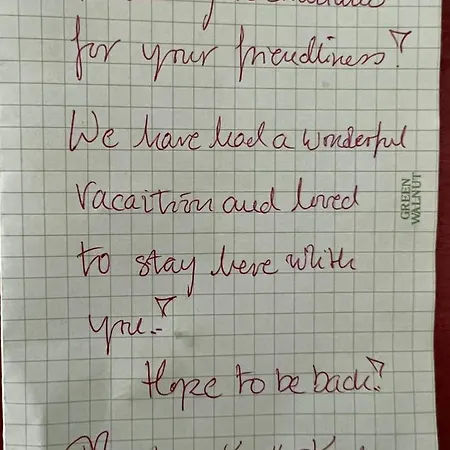 for your friendliness!
We have had a wonderful
vacaition and loved
to stay here whith
you!
Hope to be back!
GREEN
WALNUT